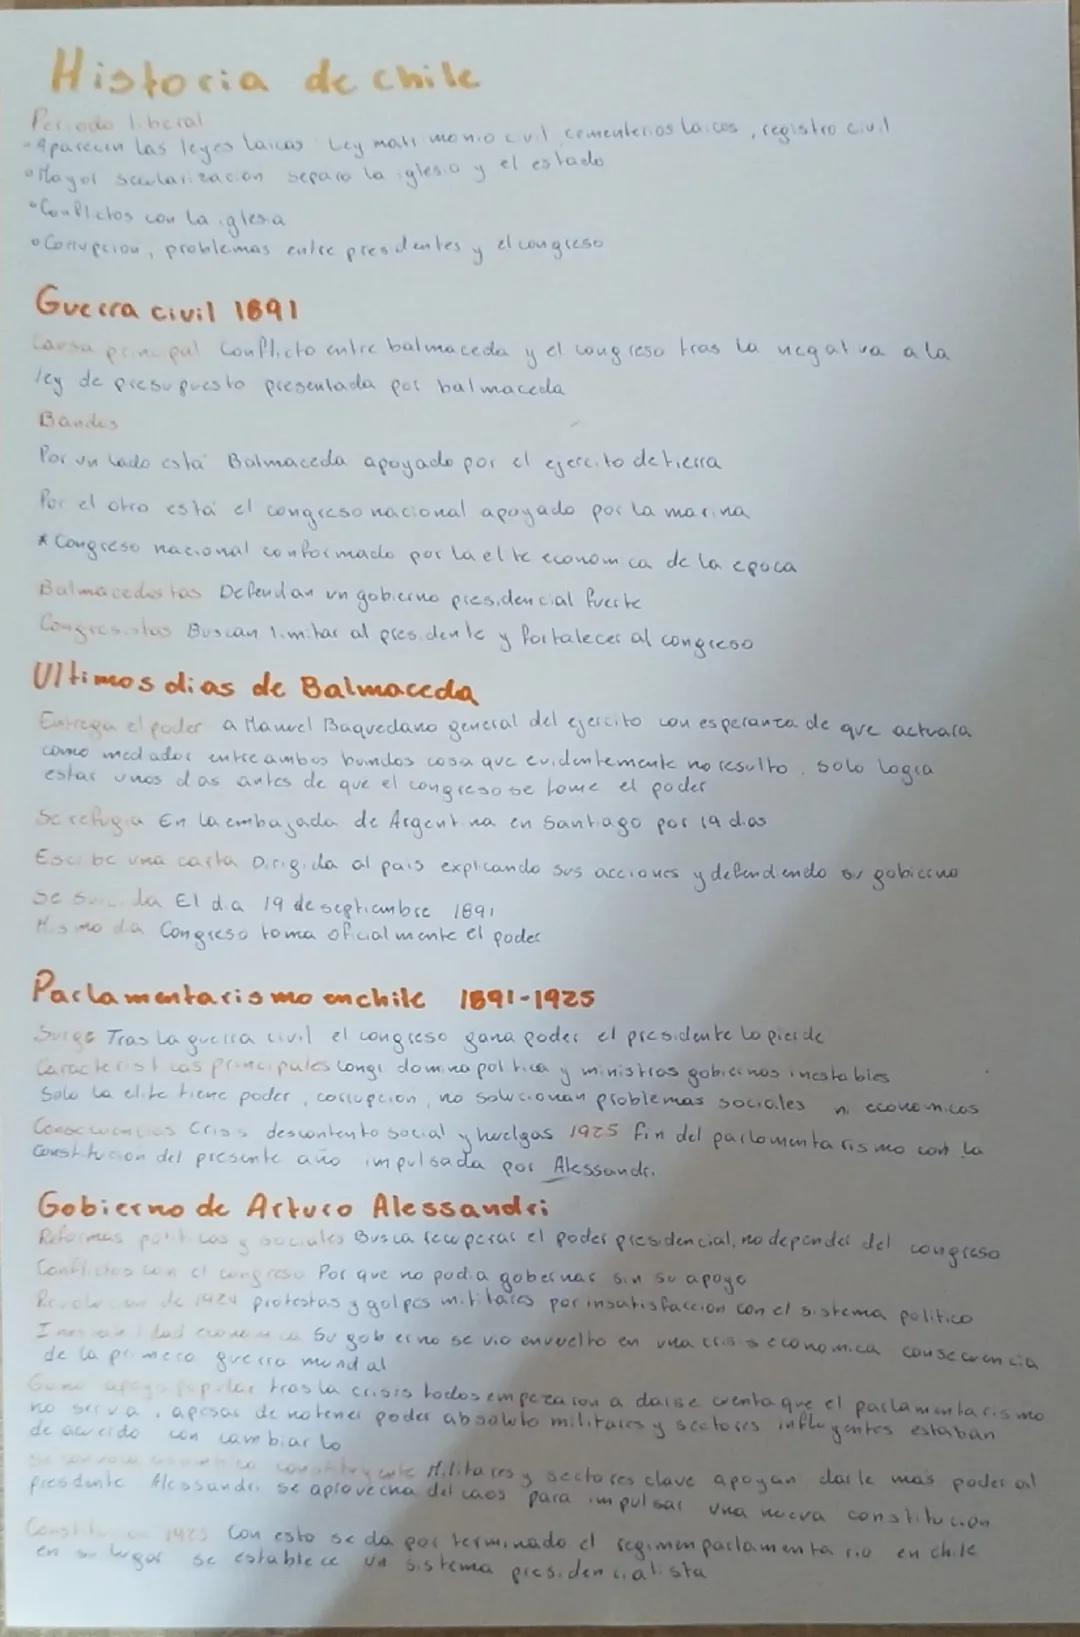 Historia de chile
Periodo liberal
• Aparecen las leyes laicas Ley matrimonio civil cementerios laicos, registro civil
• Mayor secularizacion separo la iglesia y el estado
• Conflictos con la iglesia
• Corrupcion, problemas entre presidentes y el congreso
Guerra civil 1891
Causa principal Conflicto entre balmaceda y el congreso tras la negativa a la
ley de presupuesto presentada por balmaceda
Bandos
Por un lado está Balmaceda apoyado por el ejercito de tierra
Por el otro está el congreso nacional apoyado por la marina
* Congreso nacional conformado por la elite economica de la epoca
Balmacedistas Defendian un gobierno presidencial fuerte
Congresistas Buscan limitar al presidente y fortalecer al congreso
Ultimos dias de Balmaceda
Entrega el poder a Manuel Baquedano general del ejercito con esperanza de que actuara
como mediador entre ambos bandos cosa que evidentemente no resulto, solo logra
estar unos dias antes de que el congreso se tome el poder
Se refugia En la embajada de Argentina en Santiago por 19 dias
Escribe una carta Dirigida al pais explicando sus acciones y defendiendo su gobierno
Se suicida El dia 19 de septiembre 1891
Mismo dia Congreso toma oficialmente el poder
Parlamentarismo en chile 1891-1925
Surge Tras la guerra civil el congreso gana poder el presidente lo pierde
Caracteristicas principales Congr domina politica y ministros gobiernos inestables
Solo la elite tiene poder, corrupcion, no solucionan problemas sociales ni economicos
Consecuencias Crisis descontento social y huelgas 1925 fin del parlamentarismo con la
Constitucion del presente año impulsada por Alessandri
Gobierno de Arturo Alessandri
Reformas politicas y sociales Busca recuperar el poder presidencial, no depender del congreso
Conflictos con el congreso Por que no podia gobernar sin su apoyo
Revolucion de 1924 protestas y golpes militares por insatisfaccion con el sistema politico
Inestabilidad economica Su gobierno se vio envuelto en una crisis economica consecuencia
de la primera guerra mundial
Gano apoyo popular tras la crisis todos empezaron a darse cuenta que el parlamentarismo
no servia, apesar de no tener poder absoluto militares y sectores influyentes estaban
de acuerdo con cambiarlo
constituyente Militares y sectores clave apoyan darle más poder al
presidente Alessandri se aprovecha del caos para impulsar una nueva constitucion
Constitucion 1925 Con esto se da por terminado el regimen parlamentario en chile
en su lugar se establece un sistema presidencialista